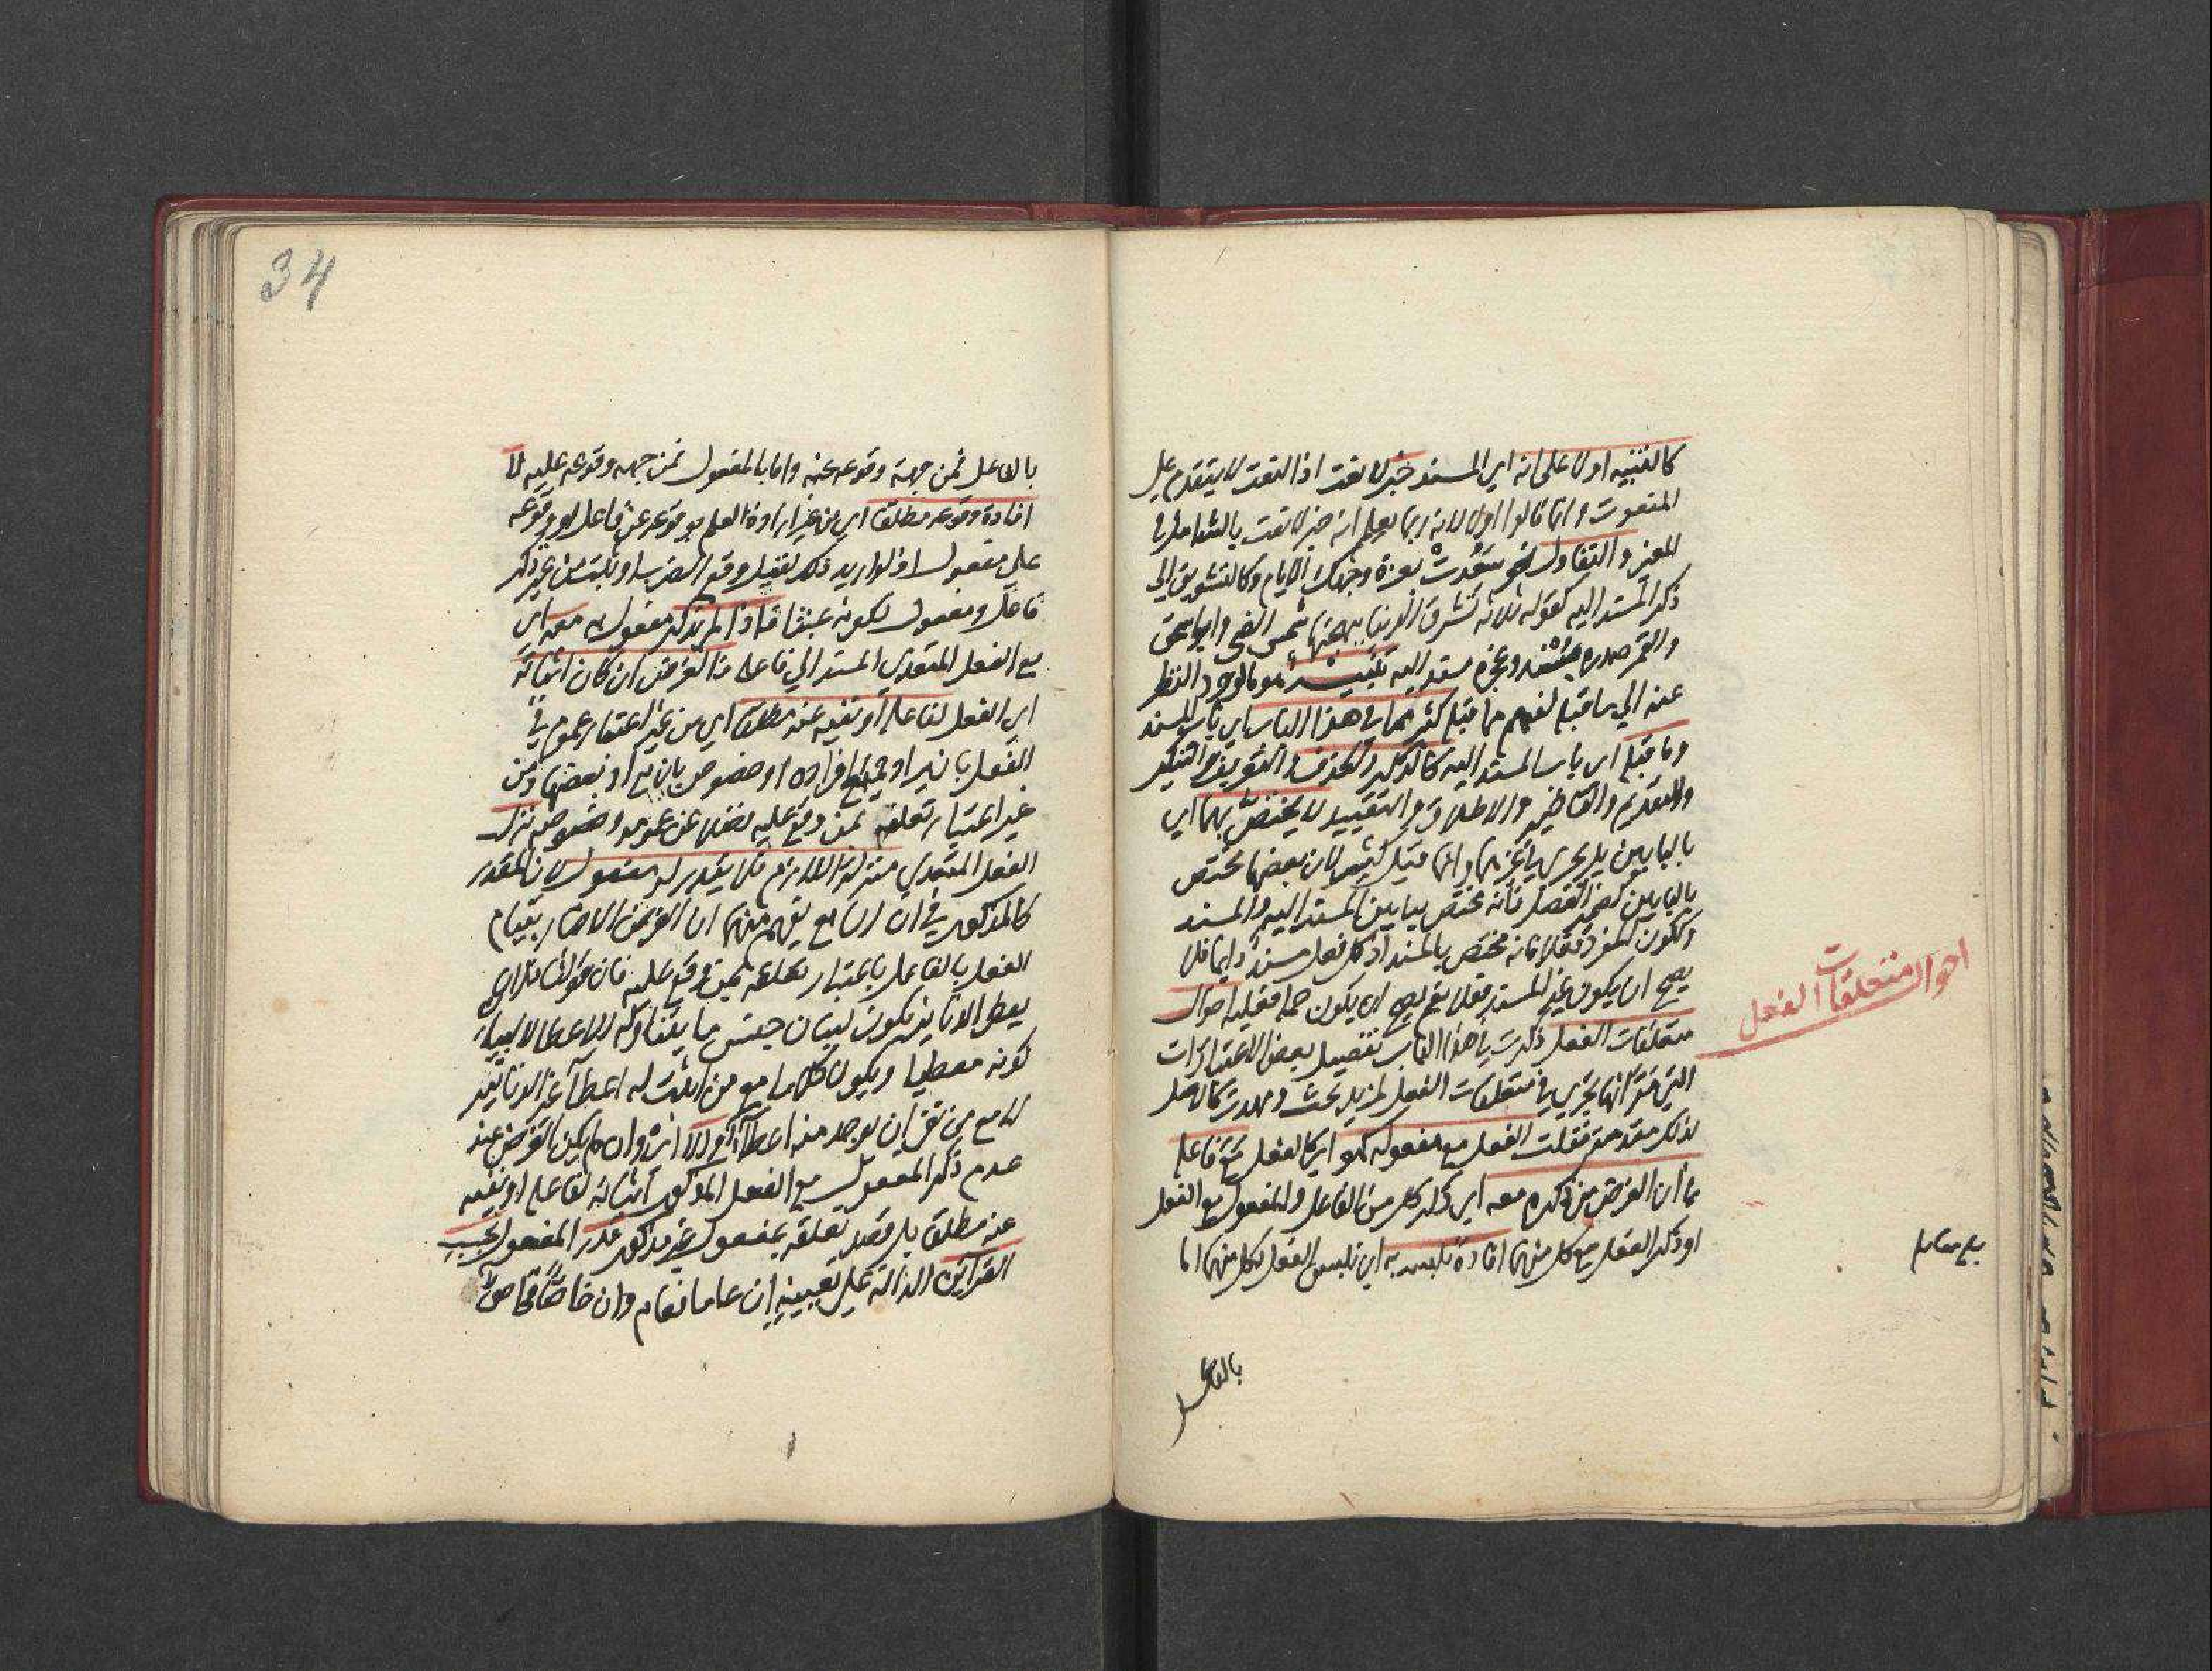 كالتنبيه اولا على انه اي المسند خبر لا نعت اذ النعت لا يتقدم على
المنعوت وانما قالوا اولا لانه ربما يعلم انه خبر لا نعت بالتامل في
المعنى والتفاول نحو سعدت بغرة وجهك الايام وكالتشويق الى
ذكر المسند اليه كقوله ثلاثة تشرق الدنيا ببهجتها شمس الضحى وابو اسحق
والقمر صدره مسند وعجزه مسند اليه تنبيه هو مالوجود النظر
عنه الى ما قبله لفهم ما قبله كثير مما في هذا الباب اي باب المسند
وما قبله اي باب المسند اليه كالذكر والحذف والتعريف والتنكير
والتقديم والتاخير والاطلاق والتقييد لا يختص بهما اي
بالبابين بل يجري في غيرهما وانما قيل كثير لان بعضها مختص
بالبابين كضمير الفصل فانه مختص بما بين المسند اليه والمسند
وككون المفرد فعلا فانه مختص بالمسند اذ كل فعل مسند دايما فلا
يصح ان يكون غير المسند فعلا نعم يصح ان يكون جملة فعلية احوال
متعلقات الفعل ذكرت في هذا الباب تفصيل بعض الاعتبارات
التي مر انها تجري في متعلقات الفعل لمزيد بحث ومهدت كالاصل
لذلك مقدمة فقلت الفعل مع مفعوله كهو اي كالفعل مع فاعله
في ان الغرض من ذكره معه اي ذكر كل من الفاعل والمفعول مع الفعل
او ذكر الفعل مع كل منهما افادة تلبسه به اي تلبس الفعل بكل منهما اما
بالفاعل
احوال متعلقات الفعل
بلغ مقابله
34
بالفاعل فمن جهة وقوعه عنه واما بالمفعول فمن جهة وقوعه عليه لا
افادة وقوعه مطلقا اي من غير ارادة العلم بوقوعه عن فاعل او وقوعه
على مفعول اذ لو اريد ذلك لقيل وقع الضرب او ثبت من غير ذكر
فاعل ومفعول لكونه عبثا فاذا لم يذكر مفعول به معه اي
مع الفعل المتعدي المسند الى فاعله فالغرض ان كان اثباته
اي الفعل لفاعله او نفيه عنه مطلقا اي من غير اعتبار عموم في
الفعل بان يراد جميع افراده او خصوص بان يراد بعضها ومن
غير اعتبار تعلقه بمن وقع عليه فضلا عن عمومه وخصوصه نزل
الفعل المتعدي منزلة اللازم فلا يقدر له مفعول لان المقدر
كالمذكور في ان السامع يفهم منهما ان الغرض الاخبار بقيام
الفعل بالفاعل باعتبار تعلقه بمن وقع عليه فان قولك فلان
يعطي الدنانير يكون لبيان جنس ما يتناوله الاعطا لا لبيان
كونه معطيا ويكون كلاما مع من اثبت له اعطاء غير الدنانير
لا مع من نفى ان يوجد منه اعطاء والا اي وان لم يكن الغرض عند
عدم ذكر المفعول مع الفعل المذكور اثباته لفاعله او نفيه
عنه مطلقا بل قصد تعلقه بمفعول غير مذكور قدر المفعول بحسب
القراين الدالة على تعيينه ان عاما فعام وان خاصا فخاص